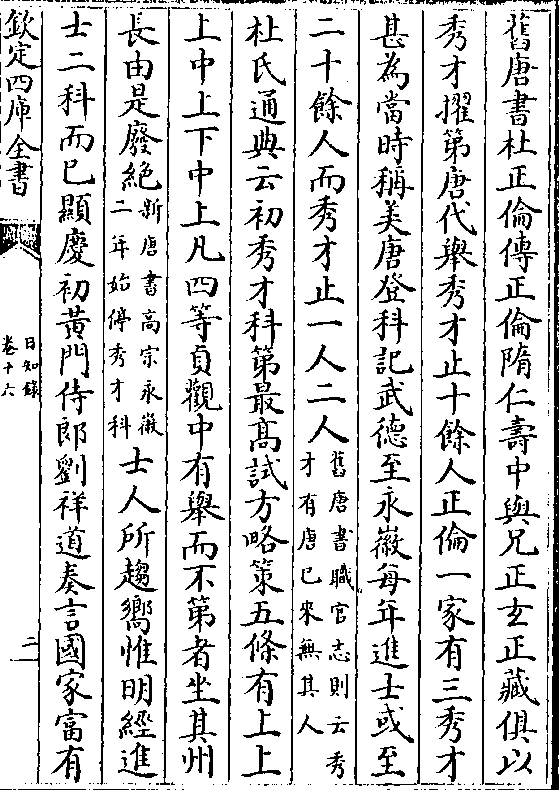 舊唐書杜正倫傳正倫隋仁壽中與兄正玄正藏俱以
秀才擢第唐代舉秀才止十餘人正倫一家有三秀才
甚為當時稱美唐登科記武德至永徽每年進士或至
二十餘人而秀才止一人二人舊唐書職官志則云秀才有唐已來無其人
杜氏通典云初秀才科第最髙試方略策五條有上上
上中上下中上凡四等貞觀中有舉而不第者坐其州
長由是廢絶新唐書髙宗永徽二年始停秀才科士人所趨嚮惟明經進
士二科而已顯慶初黃門侍郎劉祥道奏言國家富有
欽定四庫全書
日知錄
卷十六
二